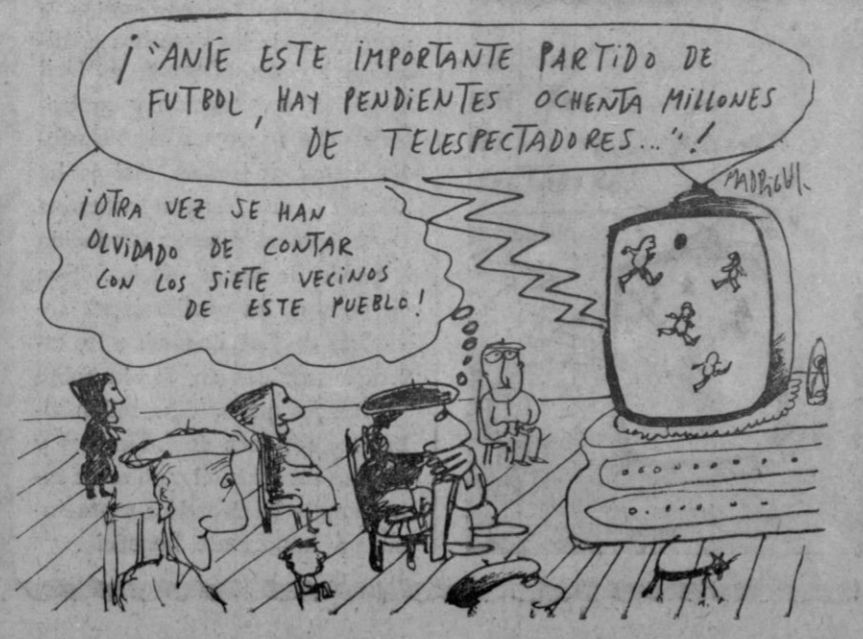 ¡"ANTE ESTE IMPORTANTE PARTIDO DE
FUTBOL, HAY PENDIENTES OCHENTA MILLONES
DE TELESPECTADORES..."!
MADRIGAL.
¡OTRA VEZ SE HAN
OLVIDADO DE CONTAR
CON LOS SIETE VECINOS
DE ESTE PUEBLO!